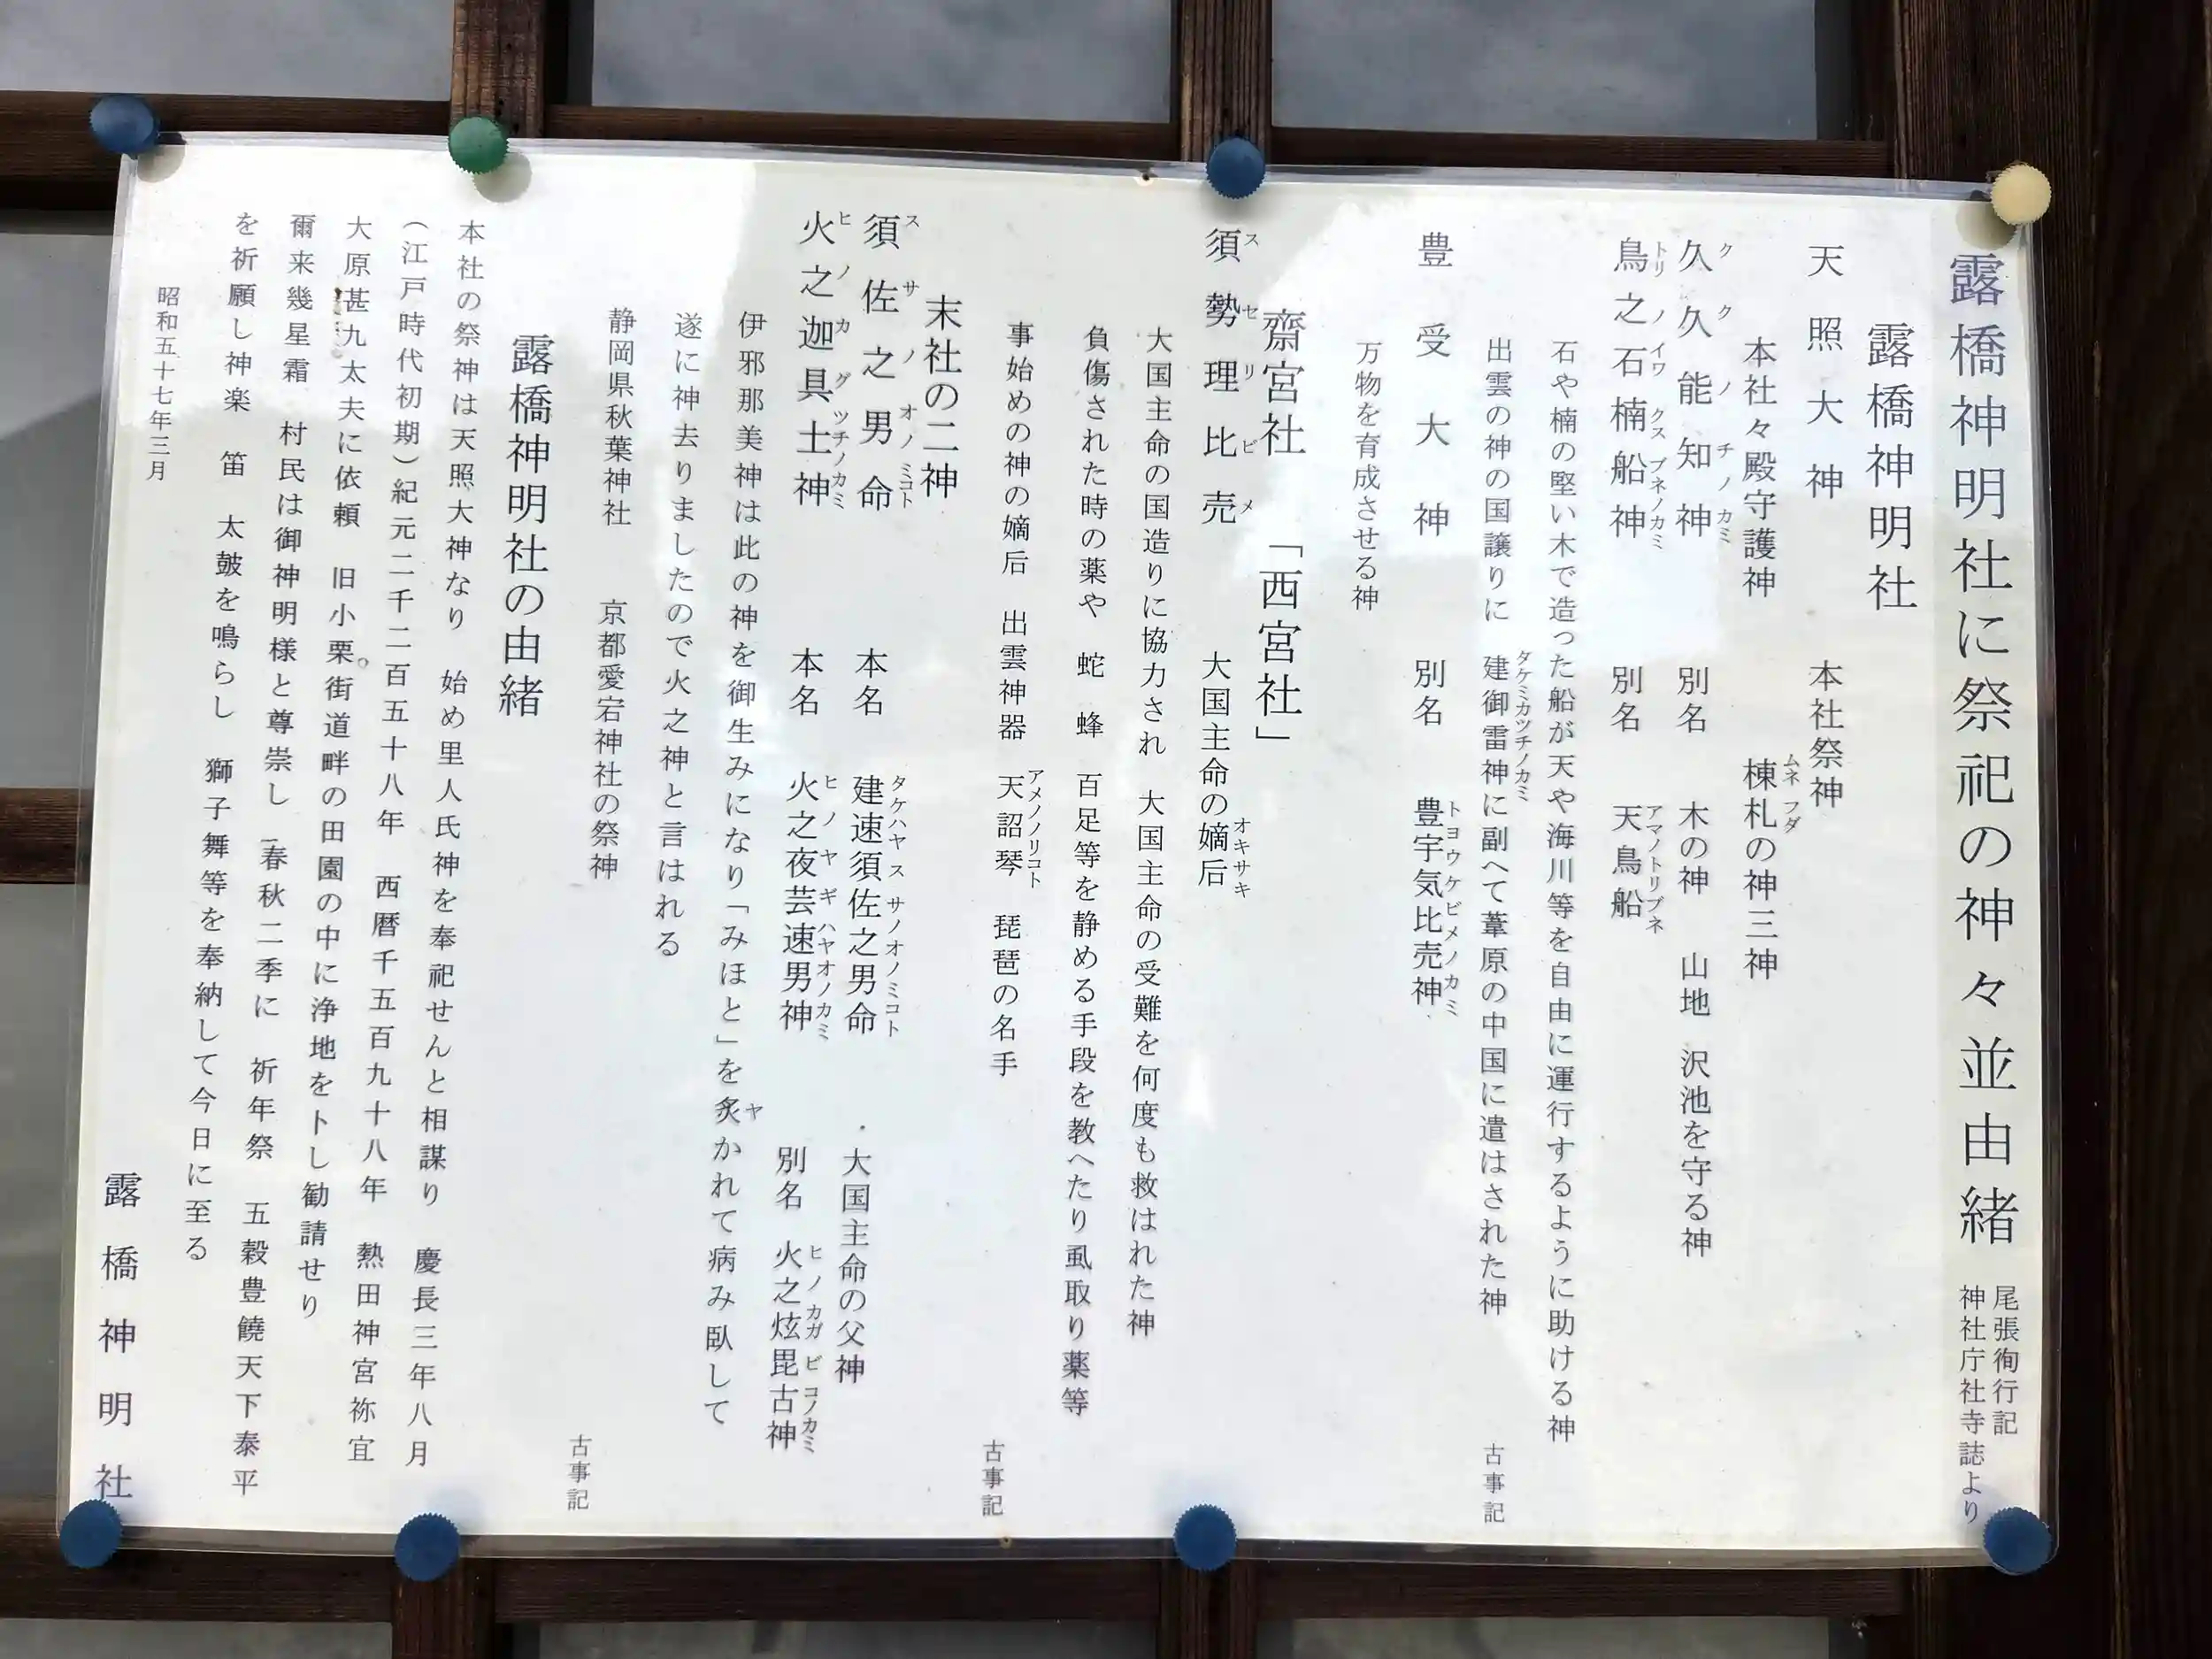 露橋神明社に祭祀の神々並由緒
尾張徇行記
神社庁社寺誌より
露橋神明社
天照大神　本社祭神
本社々殿守護神　棟札の神三神
ムネフダ
久久能知神　別名　木の神　山地　沢池を守る神
ククノチノカミ
鳥之石楠船神　別名　天鳥船
トリノイワクスブネノカミ　アマノトリブネ
石や楠の堅い木で造った船が天や海川等を自由に運行するように助ける神
出雲の神の国譲りに　建御雷神に副へて葦原の中国に遣はされた神　古事記
タケミカツチノカミ
豊受大神　別名　豊宇気比売神
トヨウケビメノカミ
万物を育成させる神
齋宮社　「西宮社」
須勢理比売　大国主命の嫡后
スセリビメ　オキサキ
大国主命の国造りに協力され　大国主命の受難を何度も救はれた神
負傷された時の薬や　蛇　蜂　百足等を静める手段を教へたり虱取り薬等
事始めの神の嫡后　出雲神器　天詔琴　琵琶の名手　古事記
アメノノリコト
末社の二神
須佐之男命　本名　建速須佐之男命　・大国主命の父神
スサノオノミコト　タケハヤスサノオノミコト
火之迦具土神　本名　火之夜芸速男神　別名　火之炫毘古神
ヒノカグツチノカミ　ヒノヤギハヤオノカミ　ヒノカガビコノカミ
伊邪那美神は此の神を御生みになり「みほと」を炙かれて病み臥して
ヤ
遂に神去りましたので火之神と言はれる
静岡県秋葉神社　京都愛宕神社の祭神　古事記
露橋神明社の由緒
本社の祭神は天照大神なり　始め里人氏神を奉祀せんと相謀り　慶長三年八月
（江戸時代初期）紀元二千二百五十八年　西暦千五百九十八年　熱田神宮祢宜
大原甚九太夫に依頼　旧小栗街道畔の田園の中に浄地を卜し勧請せり
爾来幾星霜　村民は御神明様と尊崇し　春秋二季に　祈年祭　五穀豊饒天下泰平
を祈願し神楽　笛　太鼓を鳴らし　獅子舞等を奉納して今日に至る
昭和五十七年三月
露橋神明社